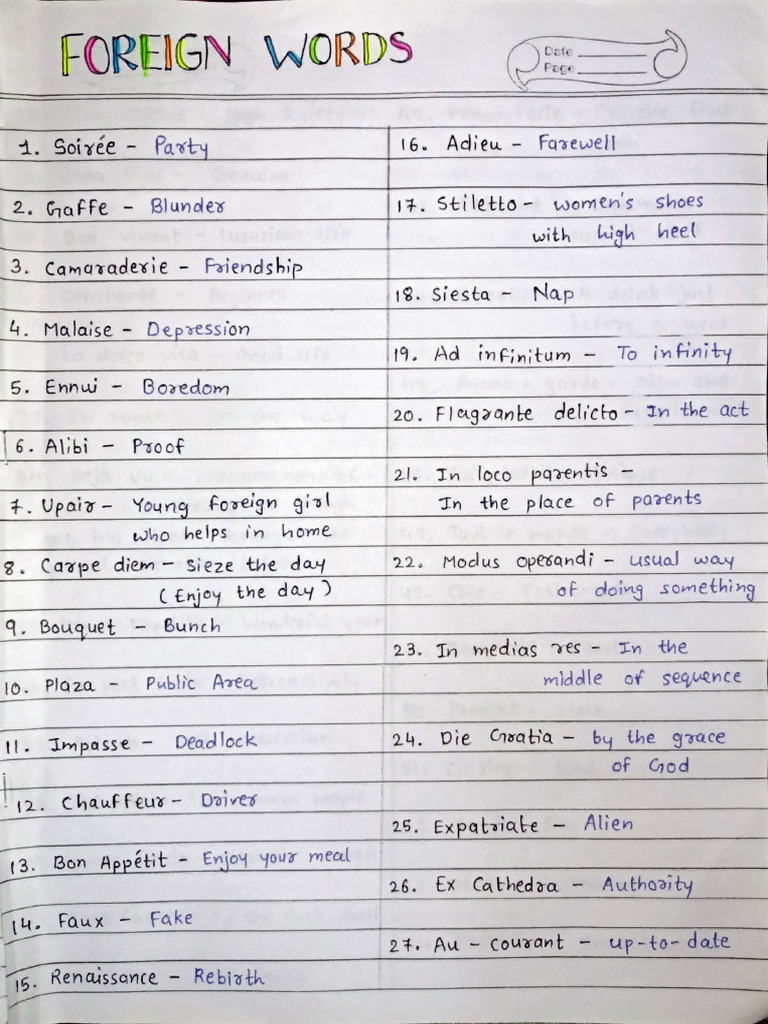 FOREIGN WORDS
Date
Page
1. Soirée - Party
2. Gaffe - Blunder
3. Camaraderie - Friendship
4. Malaise - Depression
5. Ennui - Boredom
6. Alibi - Proof
7. Upair - Young foreign girl
who helps in home
8. Carpe diem - Sieze the day
(Enjoy the day)
9. Bouquet - Bunch
10. Plaza - Public Area
11. Impasse - Deadlock
12. Chauffeur - Driver
13. Bon Appétit - Enjoy your meal
14. Faux - Fake
15. Renaissance - Rebirth
16. Adieu - Farewell
17. Stiletto - women's shoes
with high heel
18. Siesta - Nap
19. Ad infinitum - To infinity
20. Flagrante delicto - In the act
21. In loco parentis -
In the place of parents
22. Modus operandi - usual way
of doing something
23. In medias res - In the
middle of sequence
24. Die Gratia - by the grace
of God
25. Expatriate - Alien
26. Ex Cathedra - Authority
27. Au - courant - up-to-date